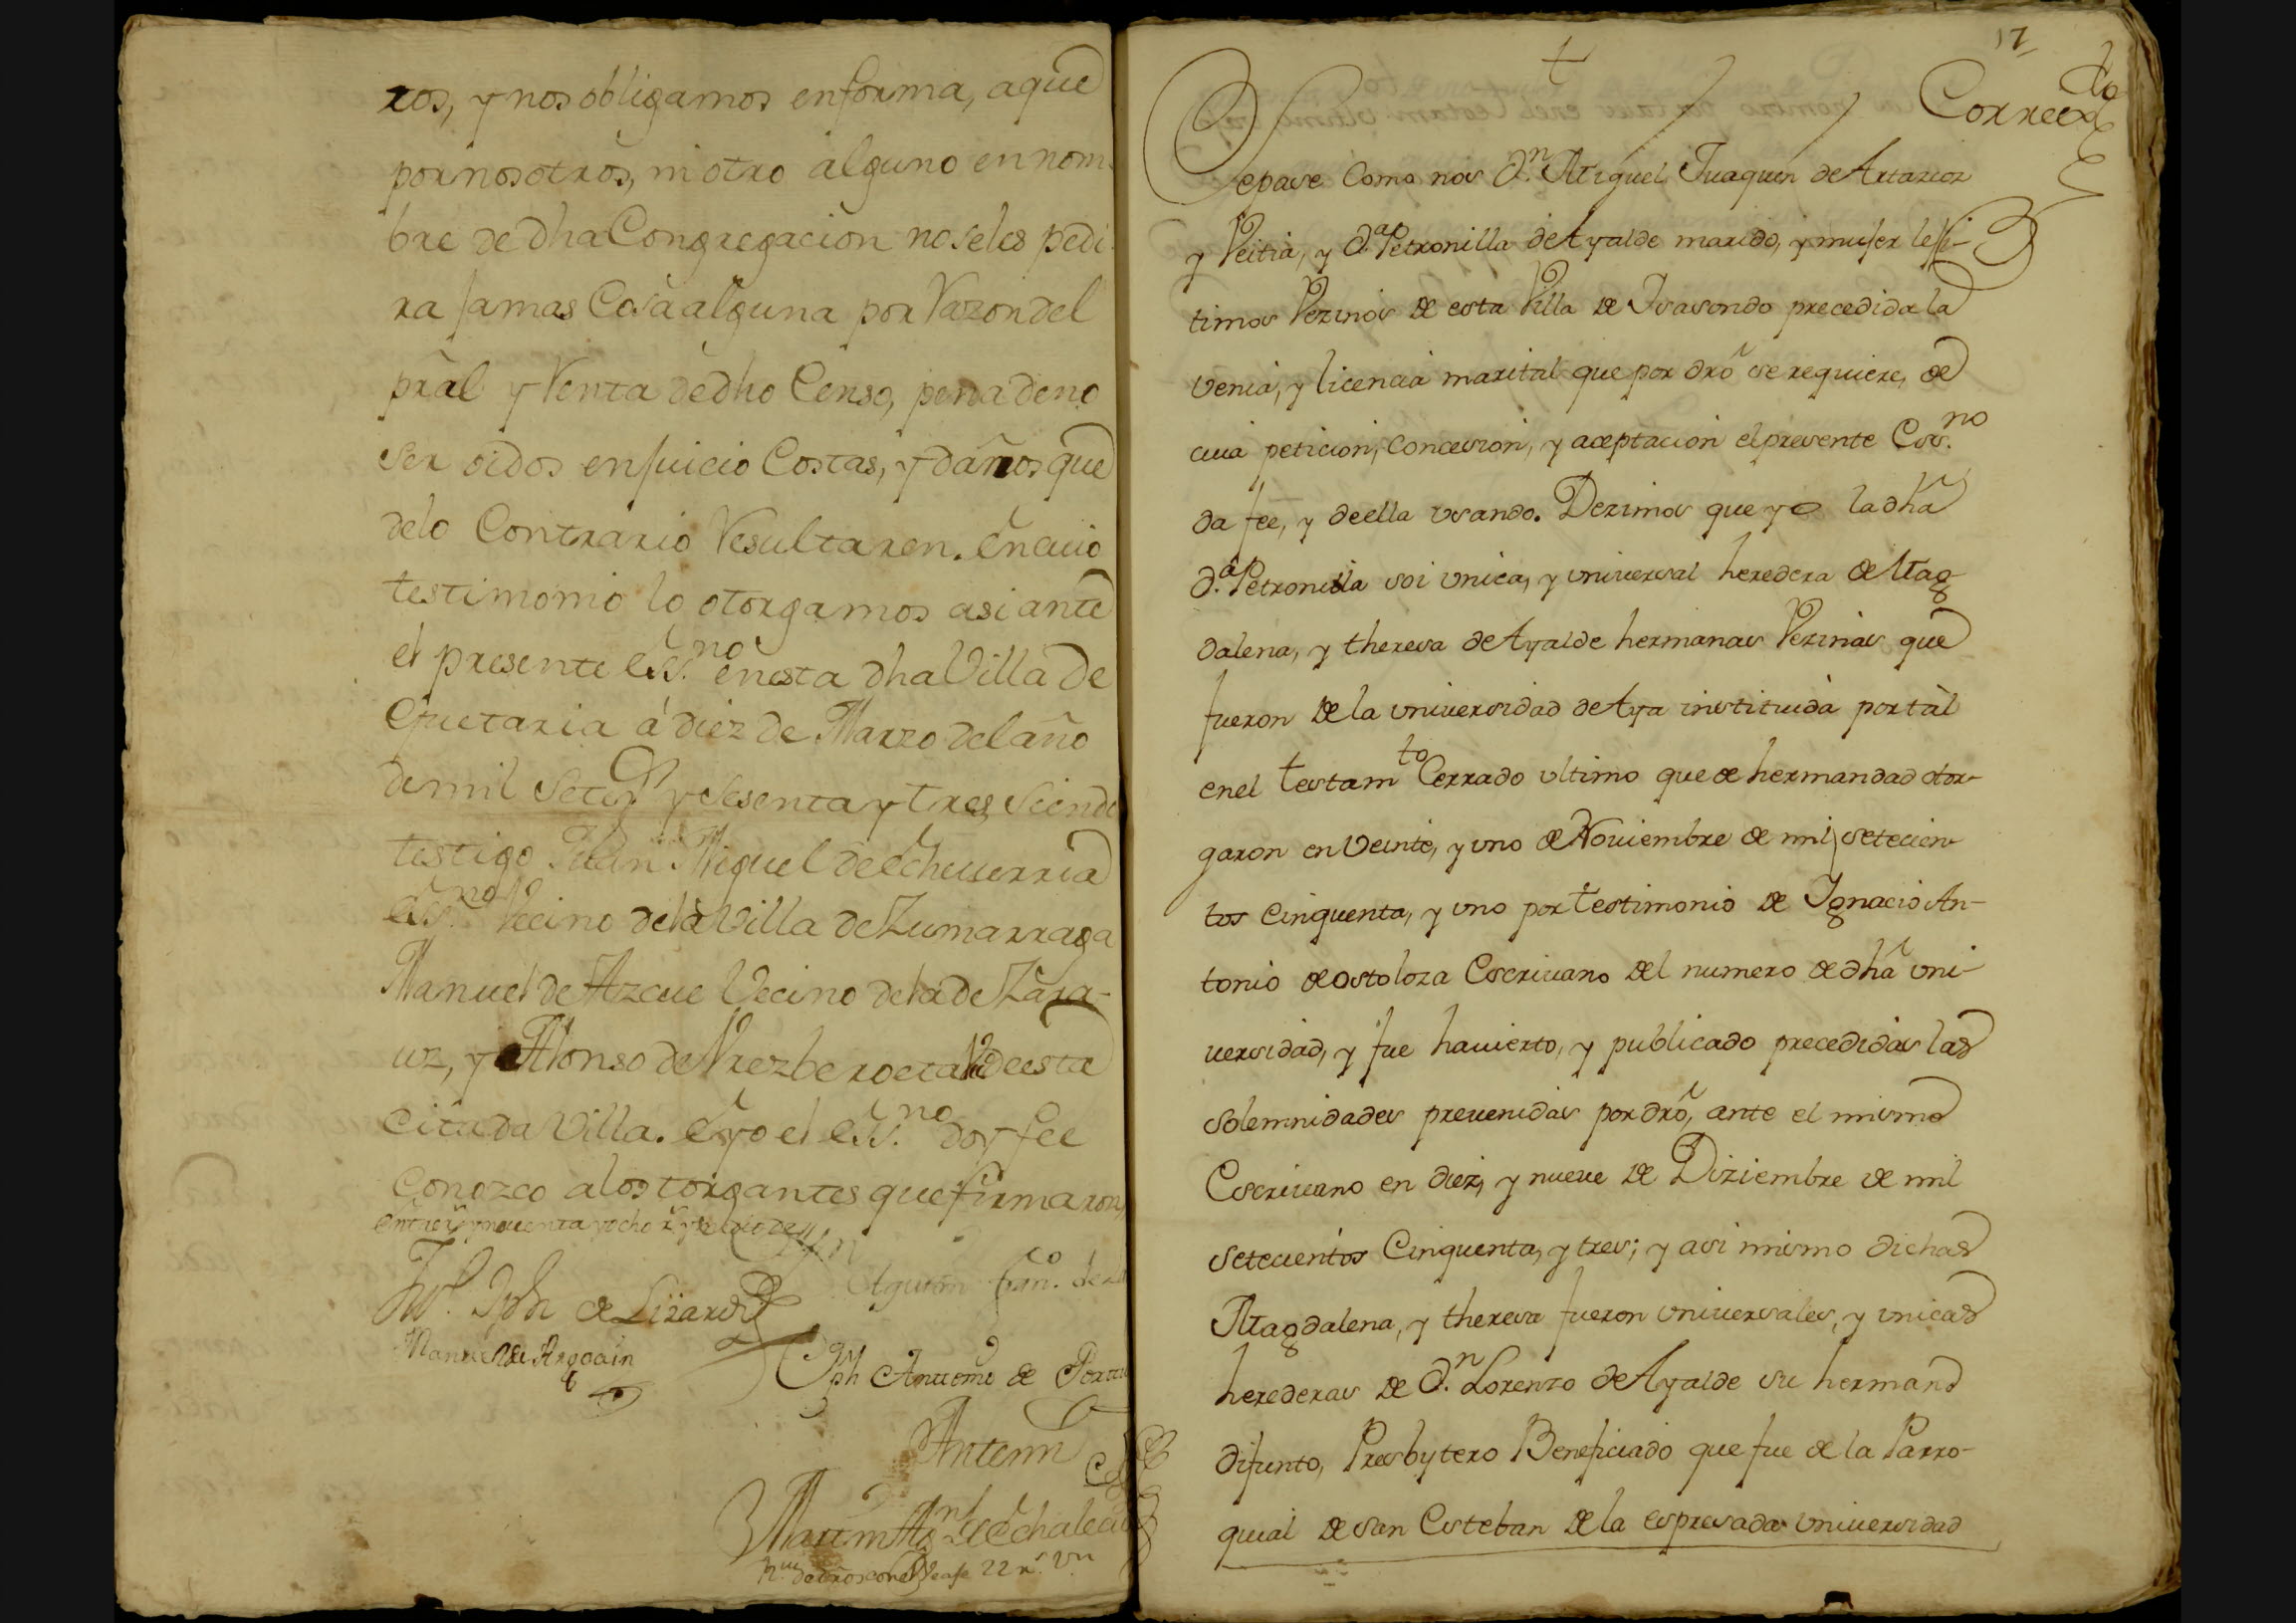 ros, y nos obligamos en forma, a que
por nosotros, ni otro alguno en nom-
bre de dha Congregacion no se les pedi-
ra jamas Cosa alguna por Razon del
pral y Renta de dho Censo, pena de no
ser oidos en juicio Costas, y daños que
de lo Contrario Resultaren. En cuio
testimonio lo otorgamos asi ante
el presente ess.no en esta dha Villa de
Guetaria á diez de Marzo del año
de mil setez.s y sesenta y tres, siendo
testigo Juan Miguel de Echeverria
ess.no Vecino de la Villa de Zumarraga
Manuel de Azcue Vecino de la de Zara-
uz, y Alonso de Arezberoeta Vº de esta
citada Villa. E yo el ess.no doy fee
Conozco a los otorgantes que firmaron,
Jph de Lizardi
Agustin Fran.co de
Manuel de Argoain
Jph Antonio de
Ante mi
Martin
22 r.s v.n
17
Correxda
Sepase Como nos d.n Miguel Juaquin de Artazcoz
y Veitia, y d.a Petronilla de Ayalde marido, y mujer leji-
timos Vezinos de esta Villa de Isasondo precedida la
venia, y licencia marital que por dro se requiere, de
cuia peticion, concesion, y aceptacion el presente Ess.no
da fee, y de ella usando. Dezimos que yo la dha
d.a Petronilla soi unica, y universal heredera de Mag-
dalena, y theresa de Ayalde hermanas Vezinas que
fueron de la universidad de Aya instituida por tál
en el testam.to Cerrado ultimo que de hermandad otor-
garon en veinte, y uno de Noviembre de mil setecien-
tos cinquenta, y uno por testimonio de Ignacio An-
tonio de ostoloza Escrivano del numero de dha uni-
versidad, y fue havierto, y publicado precedidas las
solemnidades prevenidas por dro, ante el mismo
Escrivano en diez, y nueve de Diziembre de mil
setecientos Cinquenta, y tres; y asi mismo dichas
Magdalena, y theresa fueron universales, y unicas
herederas de d.n Lorenzo de Ayalde su hermano
difunto, Presbytero Beneficiado que fue de la Parro-
quial de san Esteban de la espresada universidad